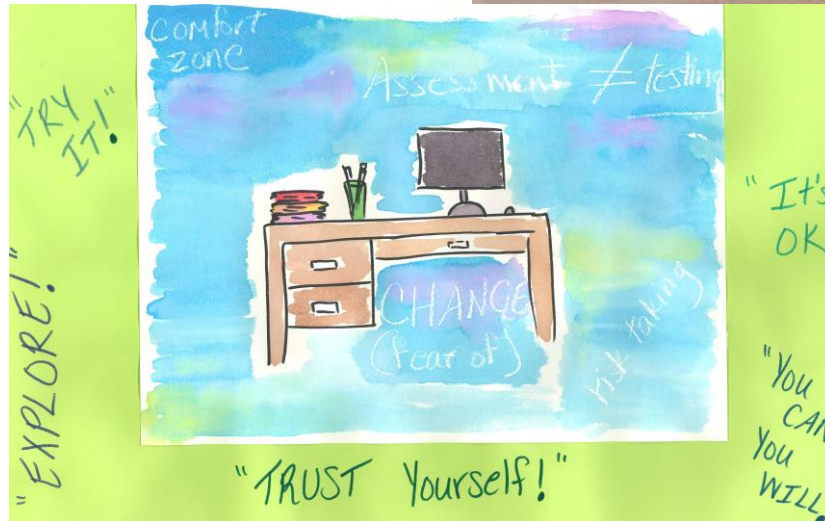 Comfort
zone
Assessment ≠ testing
"TRY
IT!"
"EXPLORE!"
CHANGE
(fear of)
risk taking
"It's
OK
"You
CAN
You
WILL.
"TRUST Yourself!"